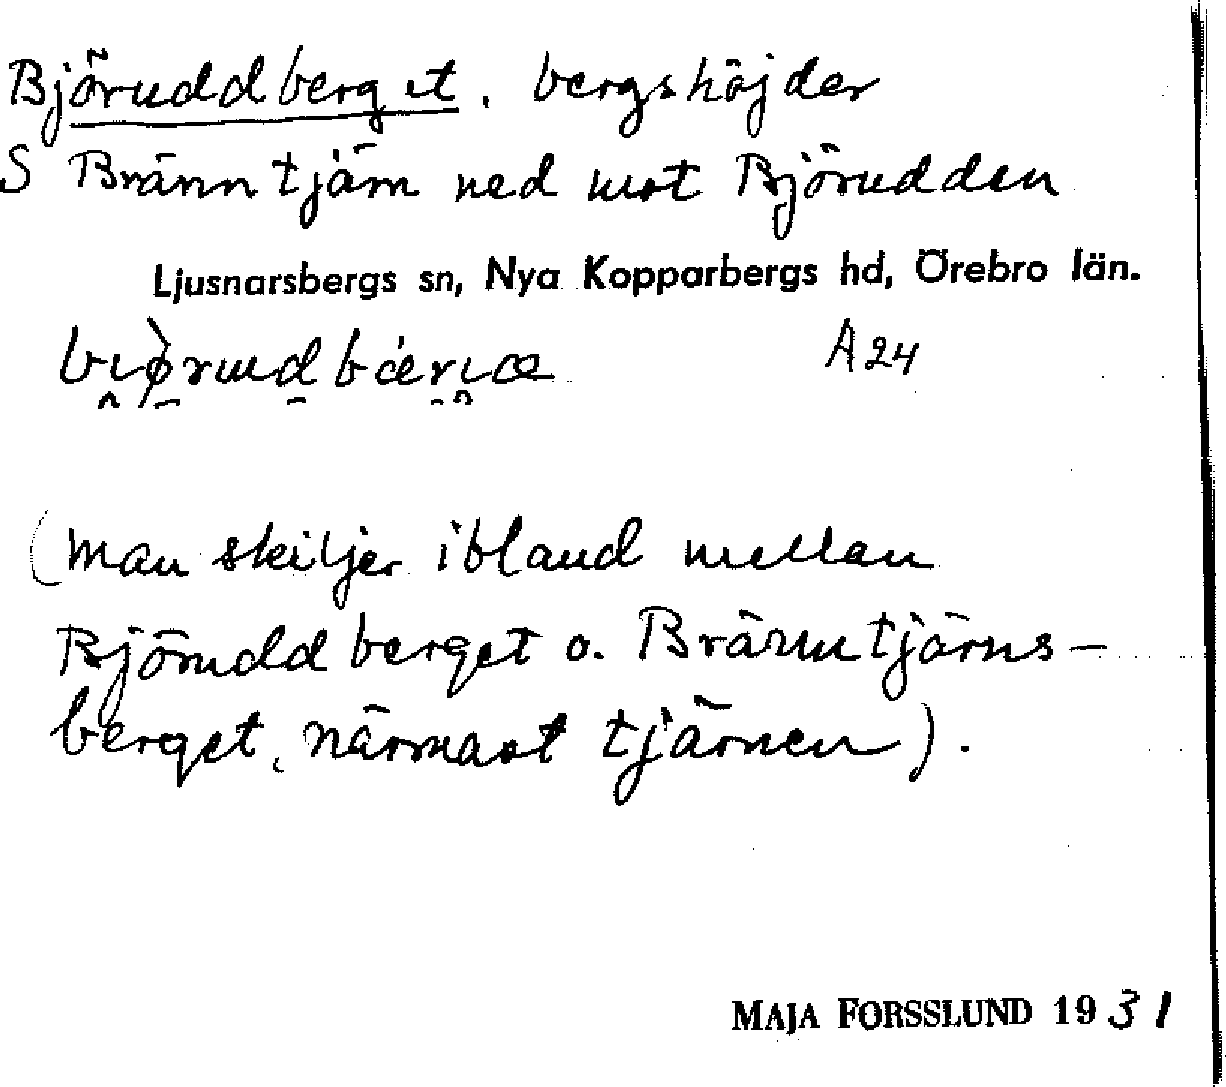 Björuddberget, bergshöjder
S Bränntjärn ned mot Björudden
Ljusnarsbergs sn, Nya Kopparbergs hd, Örebro län.
A24
(man skiljer ibland mellan
Björuddberget o. Bränntjärns-
berget, närmast tjärnen).
MAJA FORSSLUND 1931